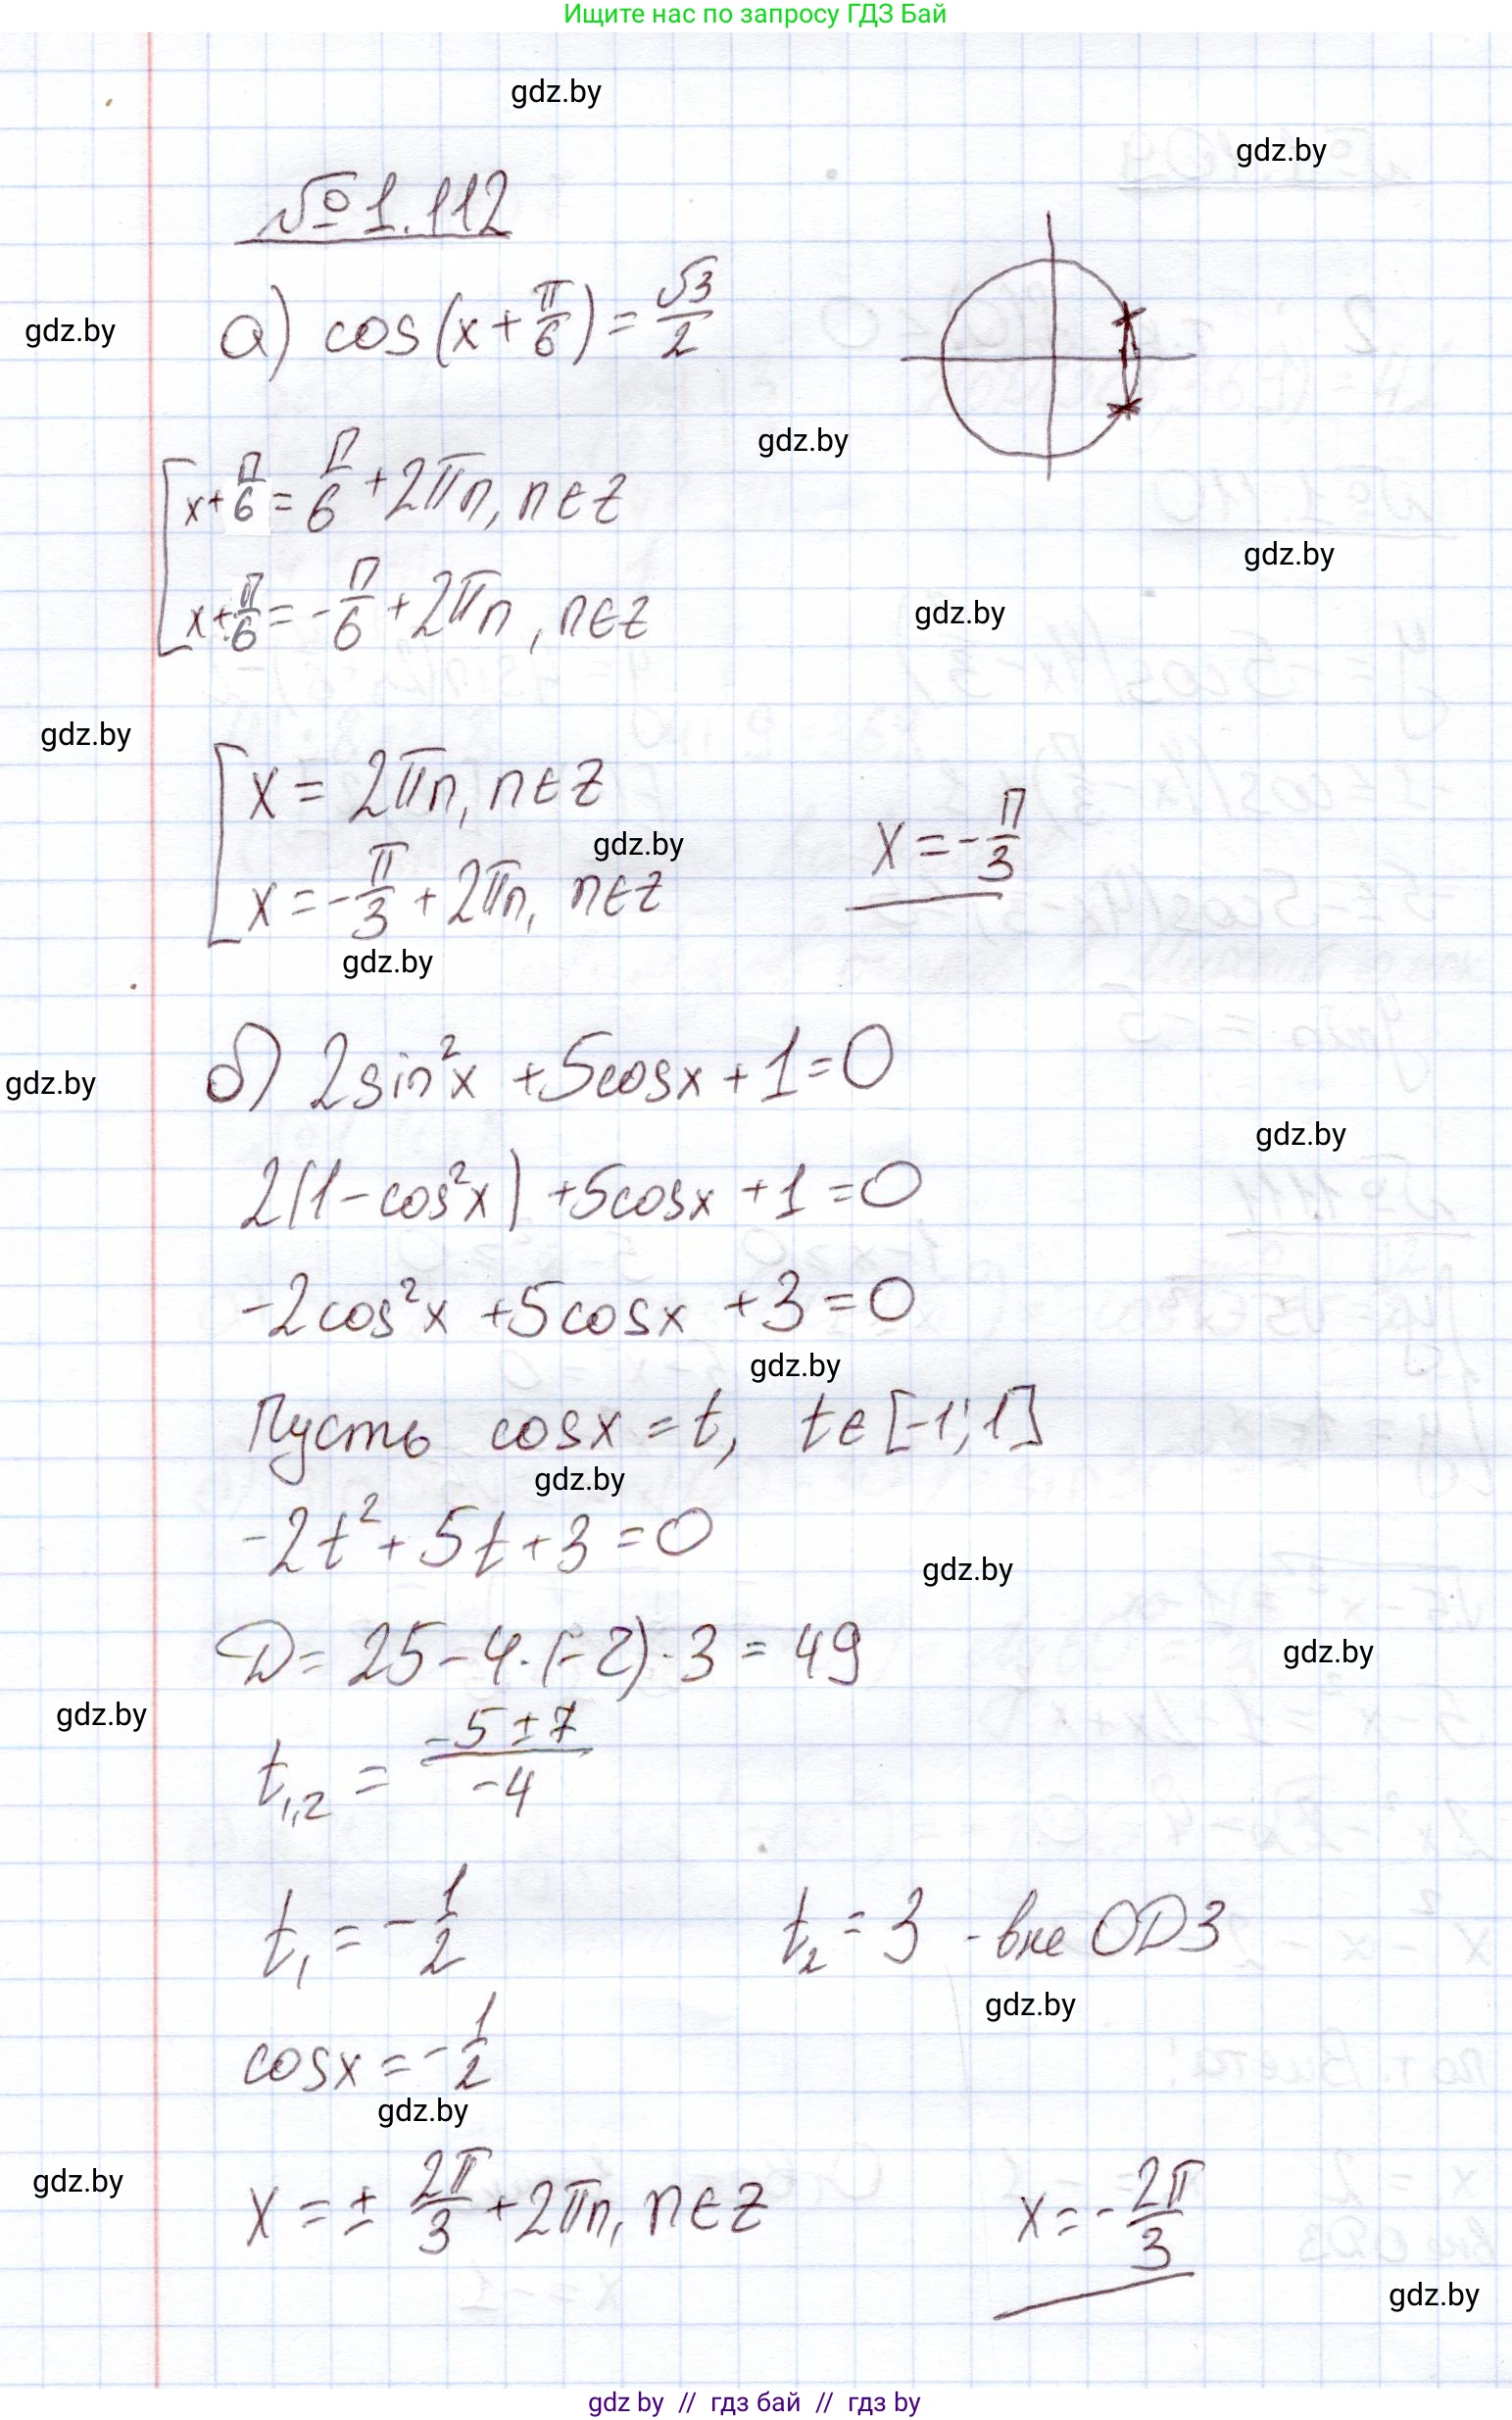 Ищите нас по запросу ГДЗ Бай
gdz.by
gdz.by
№1.112
gdz.by
а) cos(x+π/6)=√3/2
gdz.by
[x+π/6=π/6+2πn, n∈Z
gdz.by
x+π/6=-π/6+2πn, n∈Z
gdz.by
gdz.by
[x=2πn, n∈Z
gdz.by
x=-π/3+2πn, n∈Z
x=-π/3
gdz.by
б) 2sin²x+5cosx+1=0
gdz.by
gdz.by
2(1-cos²x)+5cosx+1=0
-2cos²x+5cosx+3=0
gdz.by
Пусть cosx=t, t∈[-1;1]
gdz.by
-2t²+5t+3=0
gdz.by
D=25-4·(-2)·3=49
gdz.by
gdz.by
t₁,₂=(-5±7)/-4
t₁=-1/2 t₂=3 - вне ОДЗ
gdz.by
cosx=-1/2
gdz.by
gdz.by
x=±2π/3+2πn, n∈Z x=-2π/3
gdz.by
gdz by // гдз бай // гдз by